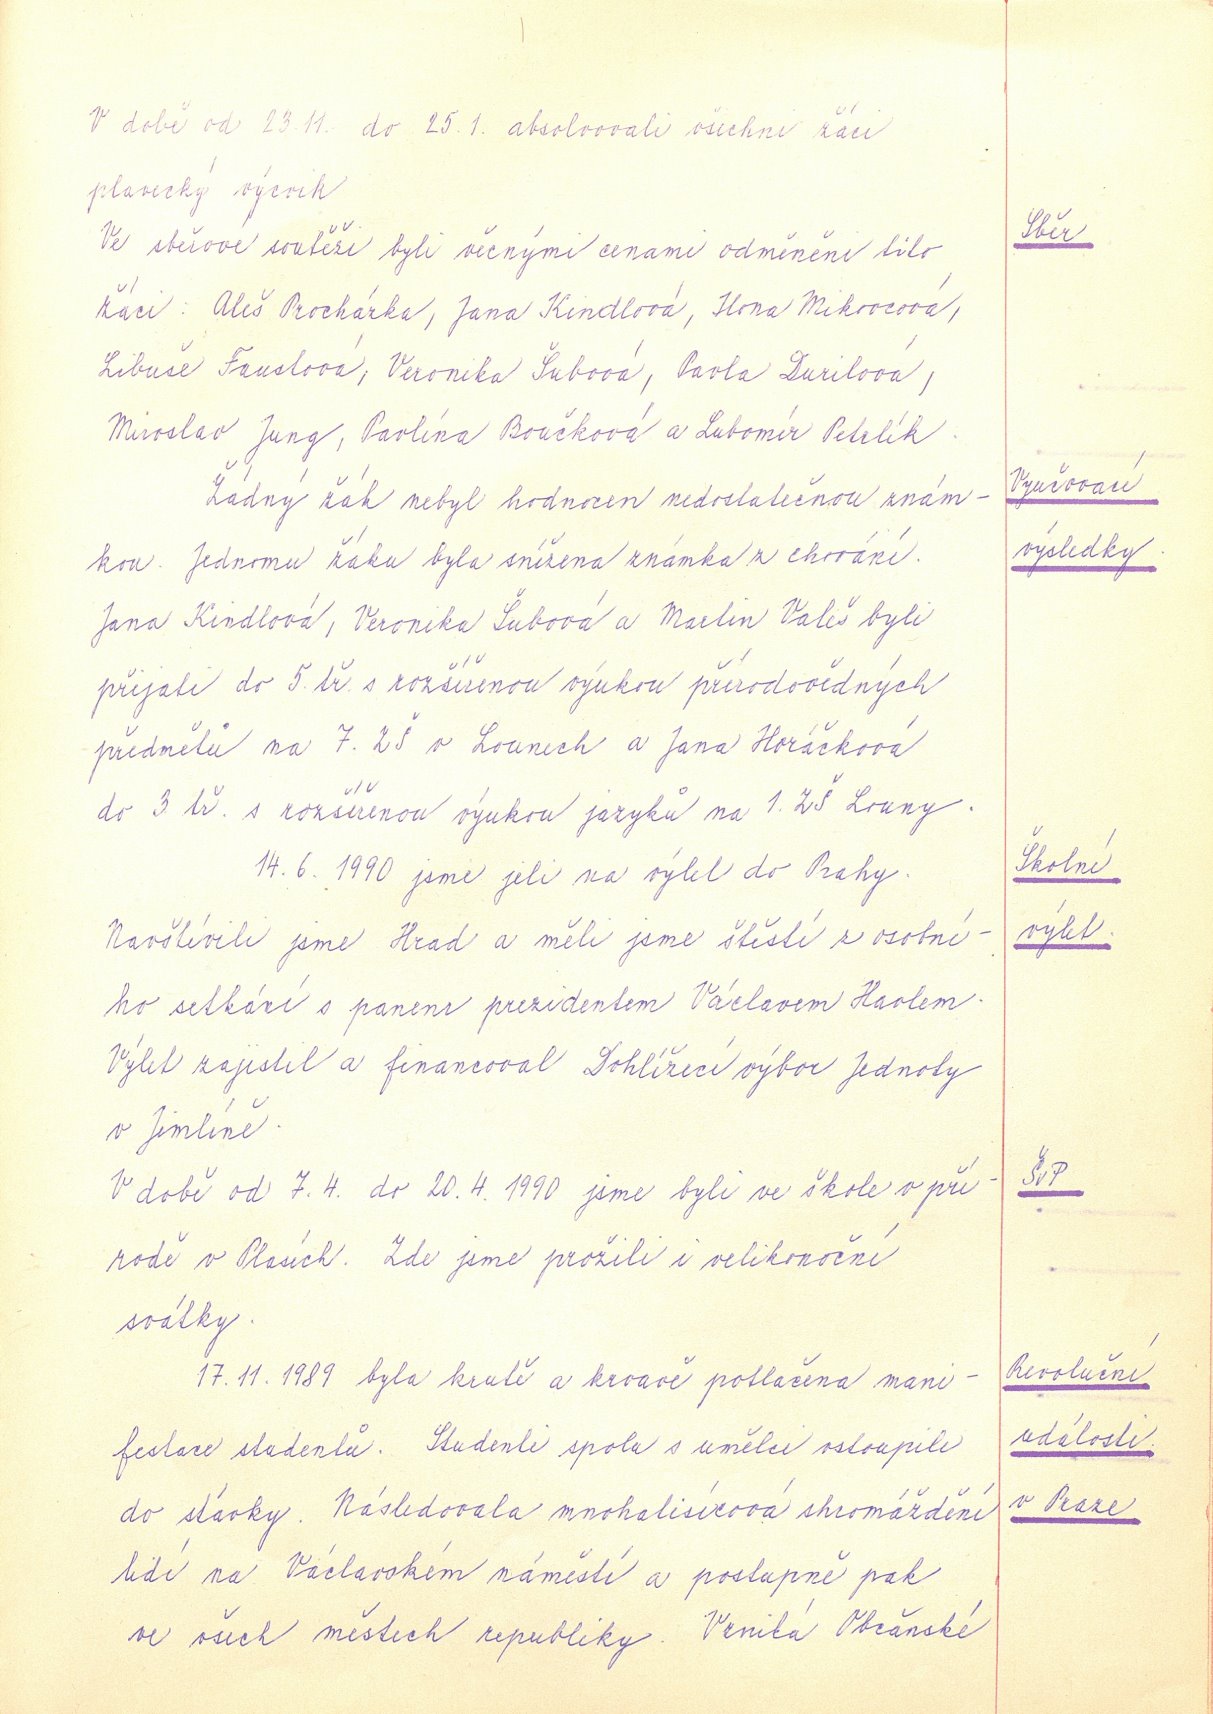 V době od 23.11. do 25.1. absolvovali všichni žáci
plavecký výcvik
Ve sběrové soutěži byli věcnými cenami odměněni tito
Sběr
žáci: Aleš Procházka, Jana Kindlová, Ilona Mikovcová,
Libuše Faustová, Veronika Šubová, Pavla Durilová,
Miroslav Jung, Pavlína Boučková a Lubomír Petrlík.
Žádný žák nebyl hodnocen nedostatečnou znám-
Vyučovací
kou. Jednomu žáku byla snížena známka z chování.
výsledky.
Jana Kindlová, Veronika Šubová a Martin Valeš byli
přijati do 5. tř. s rozšířenou výukou přírodovědných
předmětů na 7. ZŠ v Lounech a Jana Horáčková
do 3 tř. s rozšířenou výukou jazyků na 1. ZŠ Louny.
14. 6. 1990 jsme jeli na výlet do Prahy.
Školní
Navštívili jsme Hrad a měli jsme štěstí z osobní-
výlet.
ho setkání s panem prezidentem Václavem Havlem.
Výlet zajistil a financoval Dohlížecí výbor Jednoty
v Jimlíně.
V době od 7. 4. do 20. 4. 1990 jsme byli ve škole v pří-
ŠvP
rodě v Plasích. Zde jsme prožili i velikonoční
svátky.
17. 11. 1989 byla krutě a krvavě potlačena mani-
Revoluční
festace studentů. Studenti spolu s umělci vstoupili
události
do stávky. Následovala mnohatisícová shromáždění
v Praze
lidí na Václavském náměstí a postupně pak
ve všech městech republiky. Vzniká Občanské